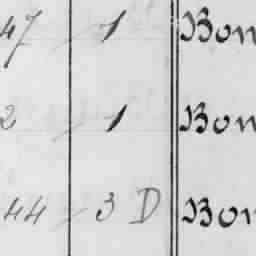 47 1 Bon
2 1 Bon
44 3 D Bon